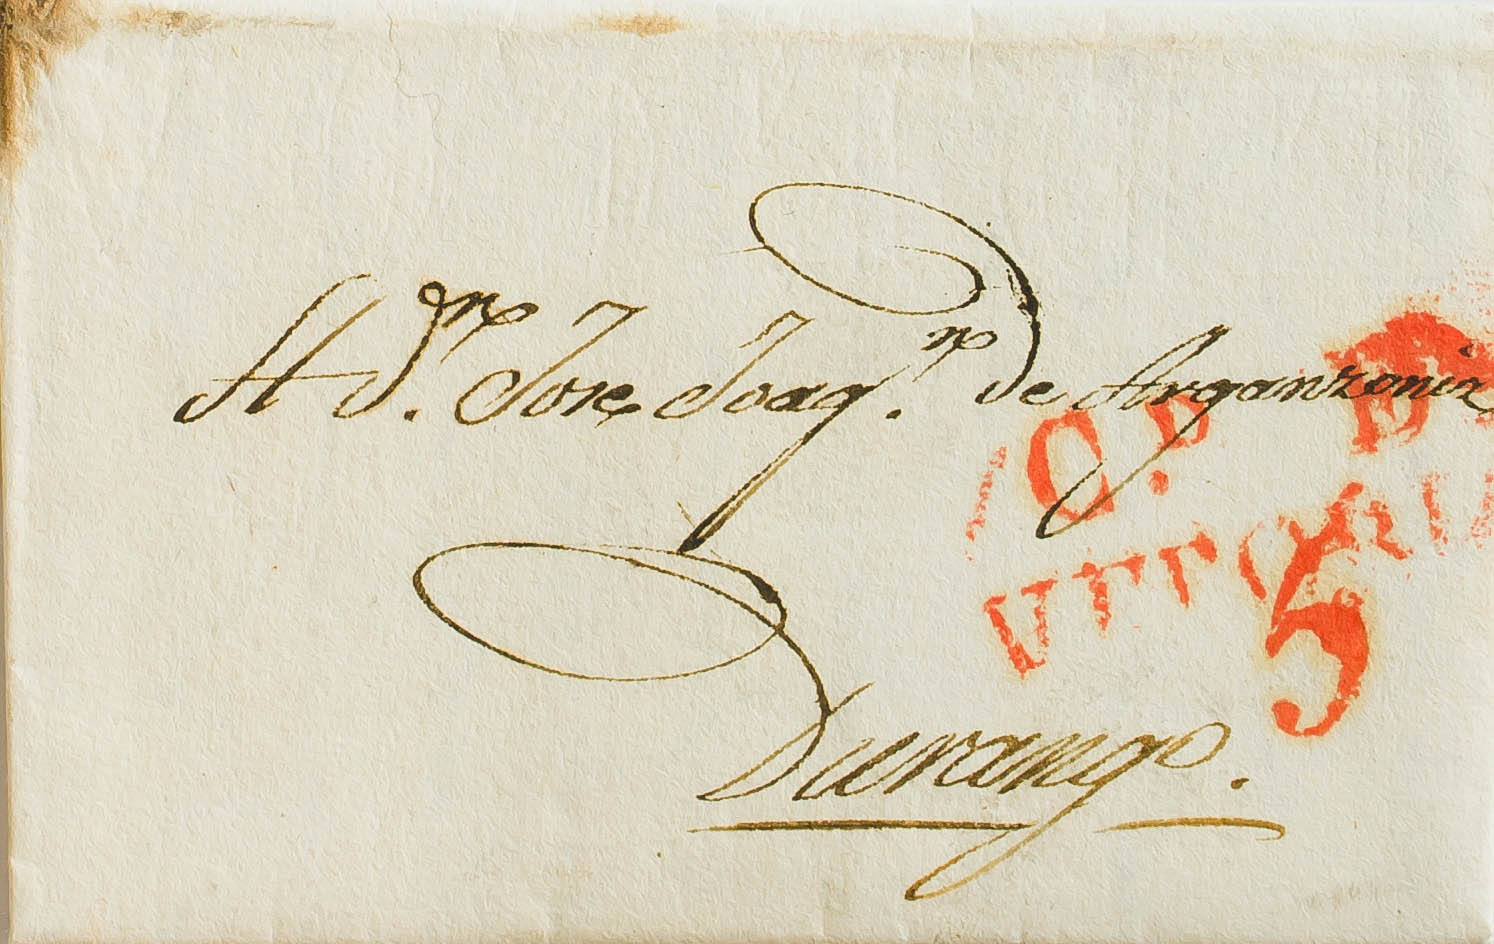 A Dn. Jose Joaqn. de Arganzonia
Durango.
VITORIA
5